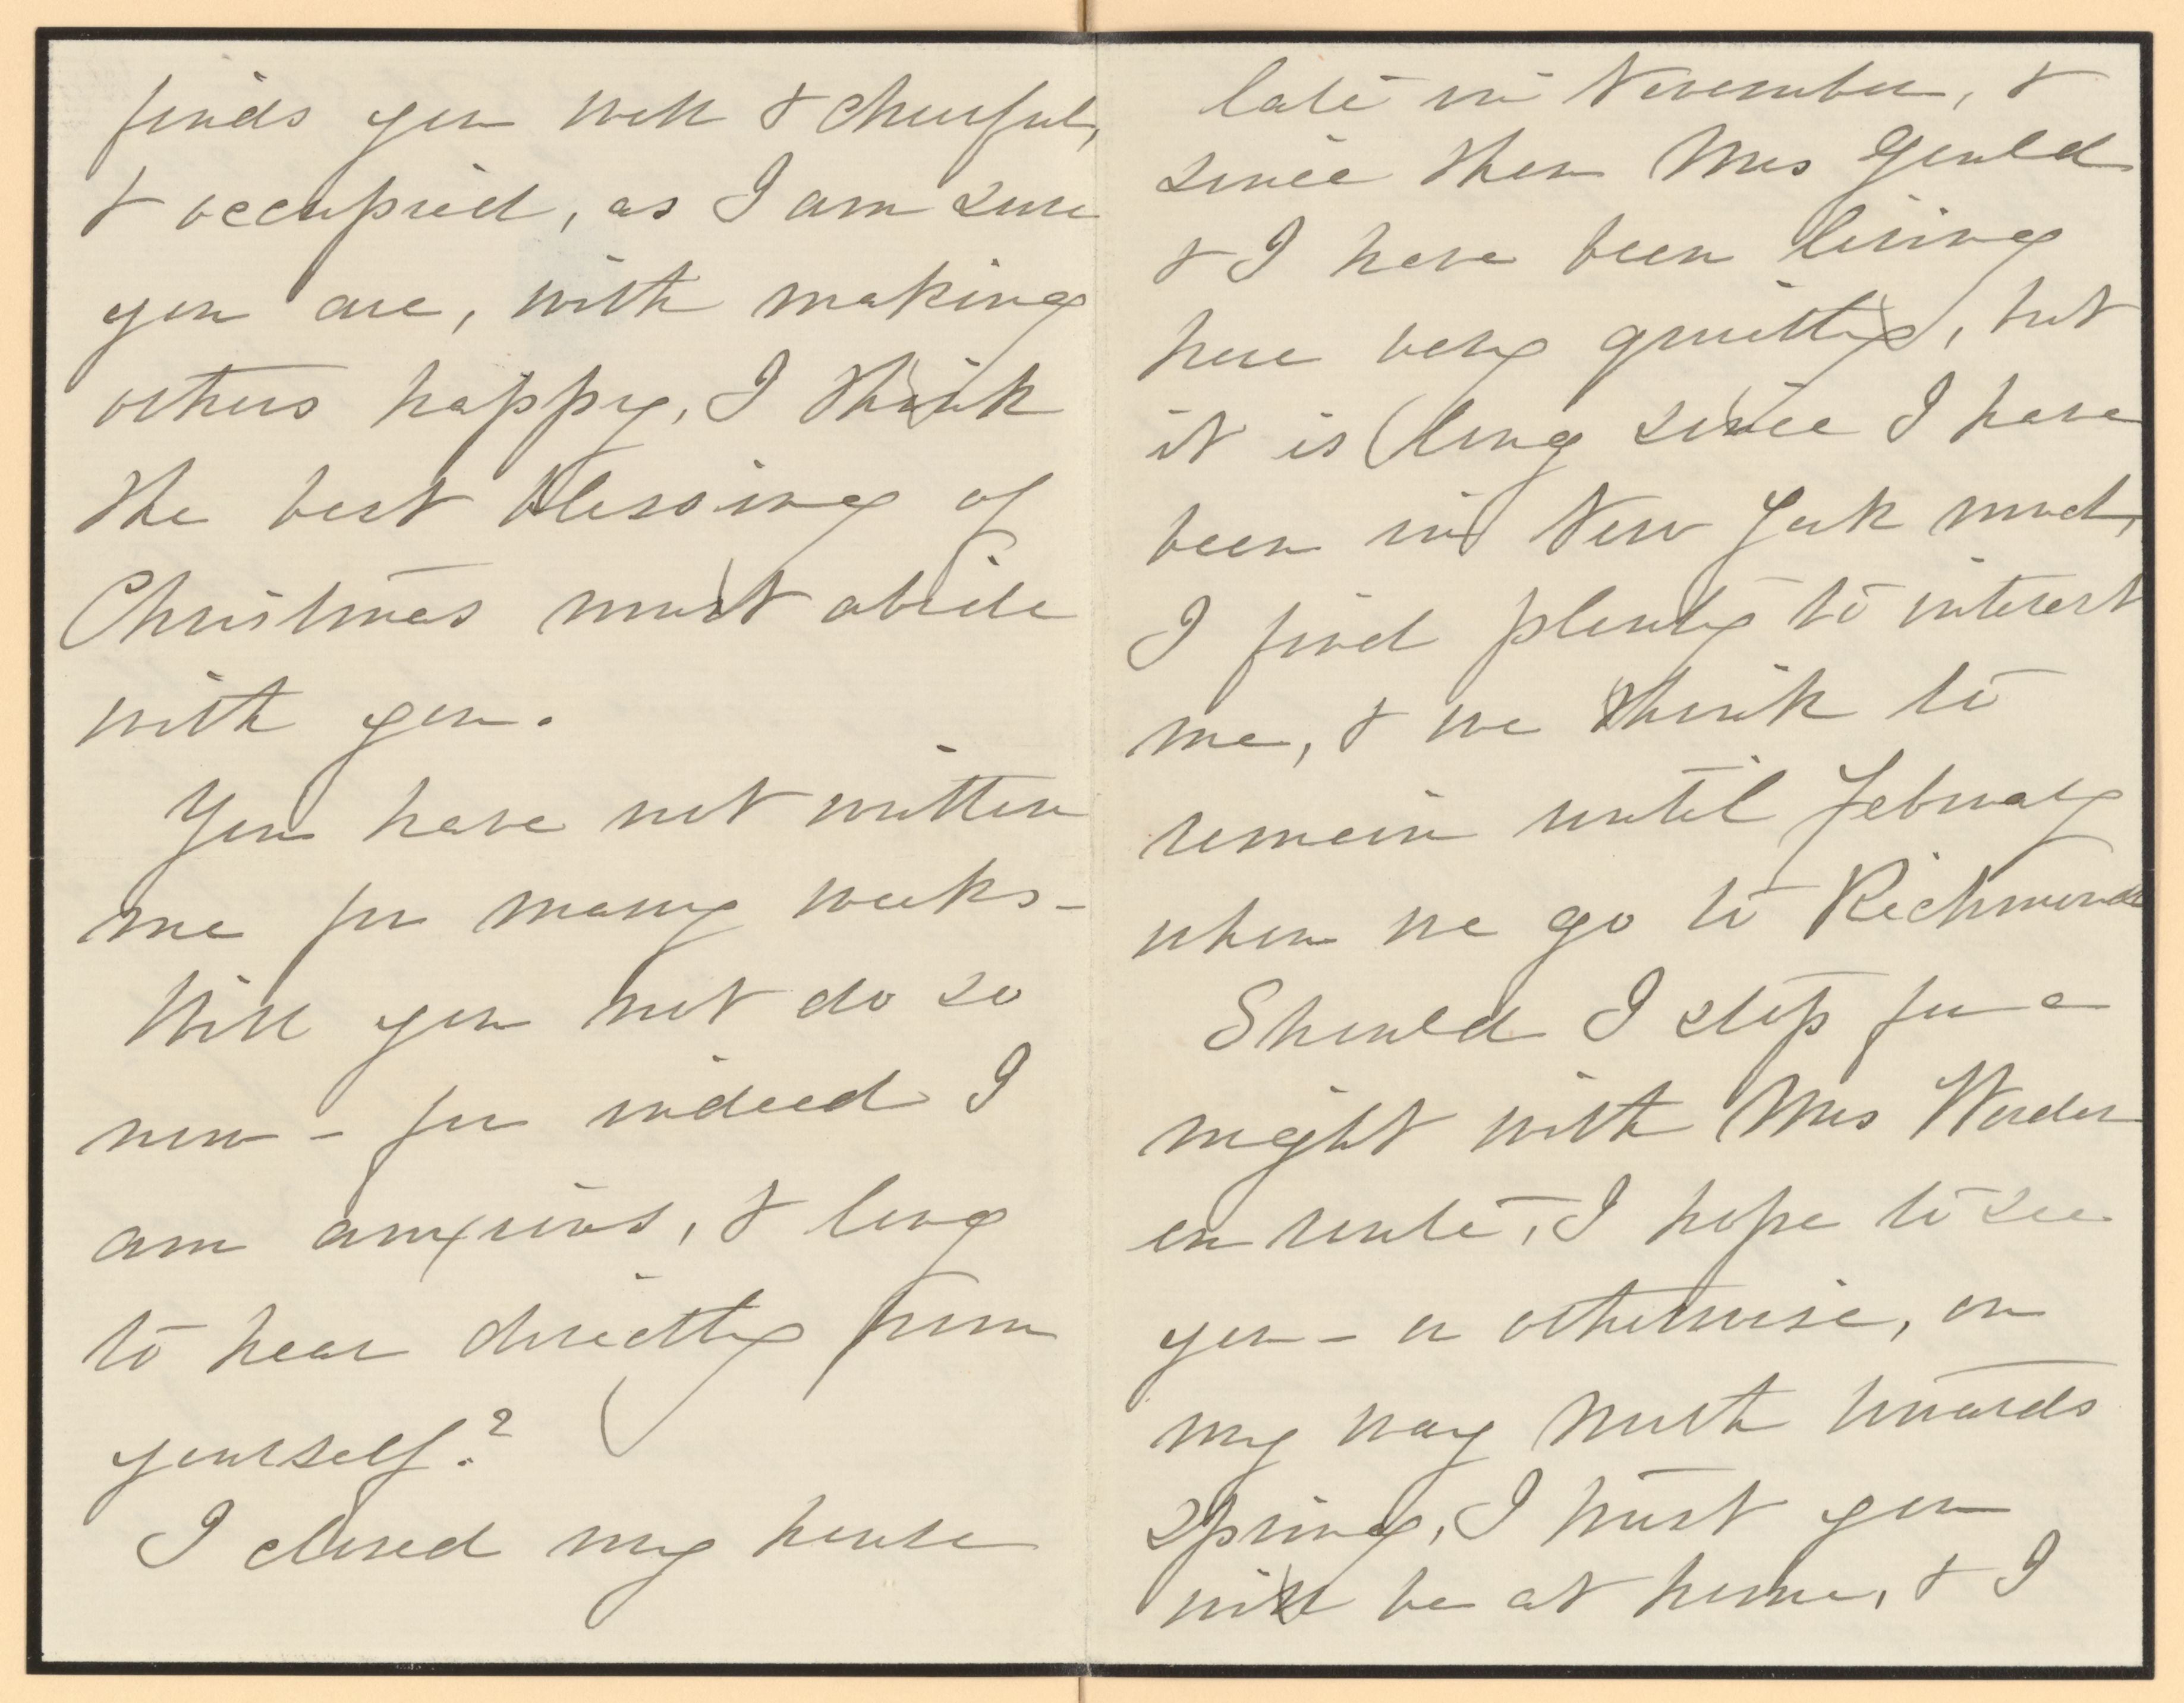 finds you well & cheerful,
& occupied, as I am sure
you are, with making
others happy, I think
the best blessing of
Christmas must abide
with you.
You have not written
me for many weeks -
Will you not do so
now - for indeed I
am anxious, & long
to hear directly from
yourself?
I closed my house
late in November, &
since then Mrs Gould
& I have been living
here very quietly, but
it is long since I have
been in New York much,
I find plenty to interest
me, & we think to
remain until February
when we go to Richmond
Should I stop for a
night with Mrs Worden
en route, I hope to see
you - or otherwise, on
my way North towards
spring, I trust you
will be at home, & I